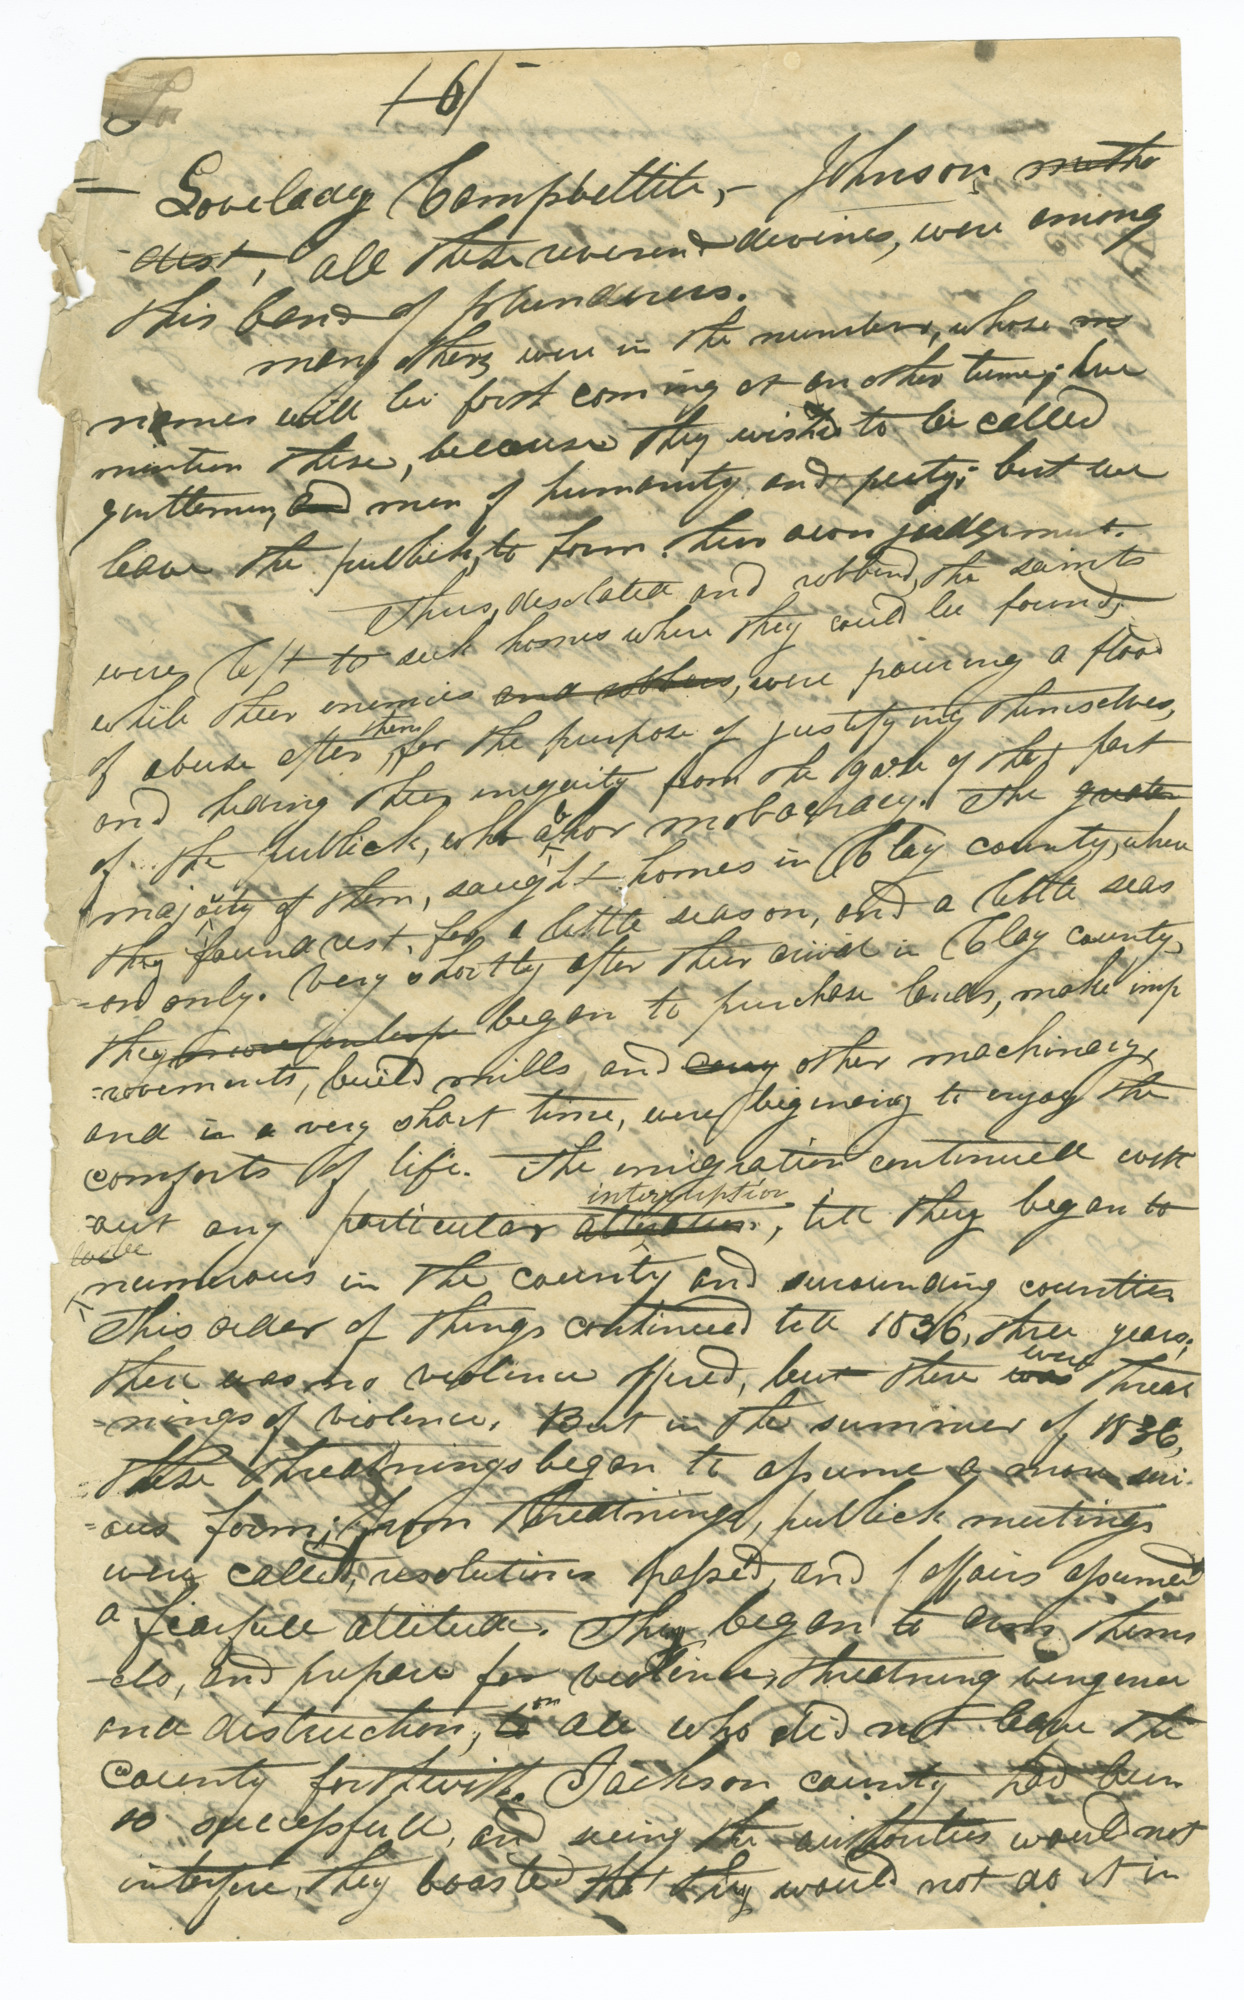 (6)
— Lovelady Campbellite,– Johnson, metho
-dist, all these reverend devines, were among
this band of plunderers.
many others were in the number, whose
names will be forth coming at another time; we
mention these, because they wished to be called
gentlemen, and men of humanity and piety; but we
leave the publick, to form their own judgement.
Thus, desolated and robbed, the saints
were left to seek homes where they could be found,
while their enemies and robbers, were pouring a flood
of abuse after them, for the purpose of justifying themselves,
and hiding their iniquity from the gaze of that part
of the publick, who abhor mobocracy. The greater
majority of them, saught homes in Clay county, where
they found rest, for a little season, and a little seas
-on only. Very shortly after their arival in Clay county,
they began to purchase lands, make imp
-rovements, build mills, and other machinery,
and in a very short time, were begining to enjoy the
comforts of life. The emigration continued with
-out any particular interruption, till they began to
to be
numerous in the county and surounding counties
This order of things continued till 1836, three years;
there was no violence offered, but there was were threat
-nings of violence. But in the summer of 1836,
these threatnings began to assume a more seri-
-ous form; from threatnings, publick meetings
were called, resolutions passed, and affairs assumed
a fearfull attitude. They began to arm thems
-els, and prepare for violence, threatning vengence
and distruction, to on all who did not leave the
county forthwith. Jackson county had been
so successfull, and seeing the authorities would not
interfere, they boasted that they would not do it in